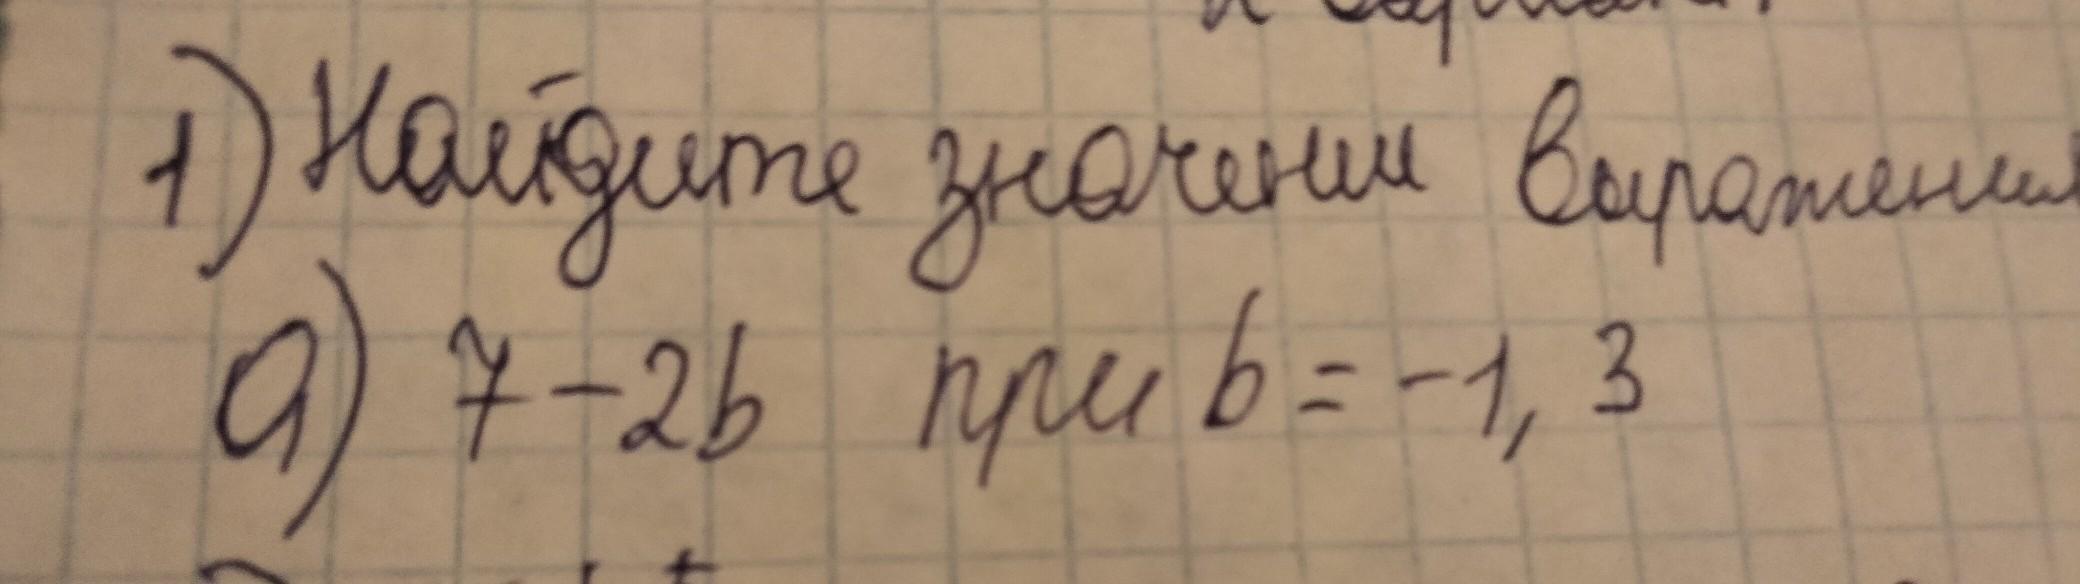 1) Найдите значении выражения
а) 7-2b при b = -1, 3